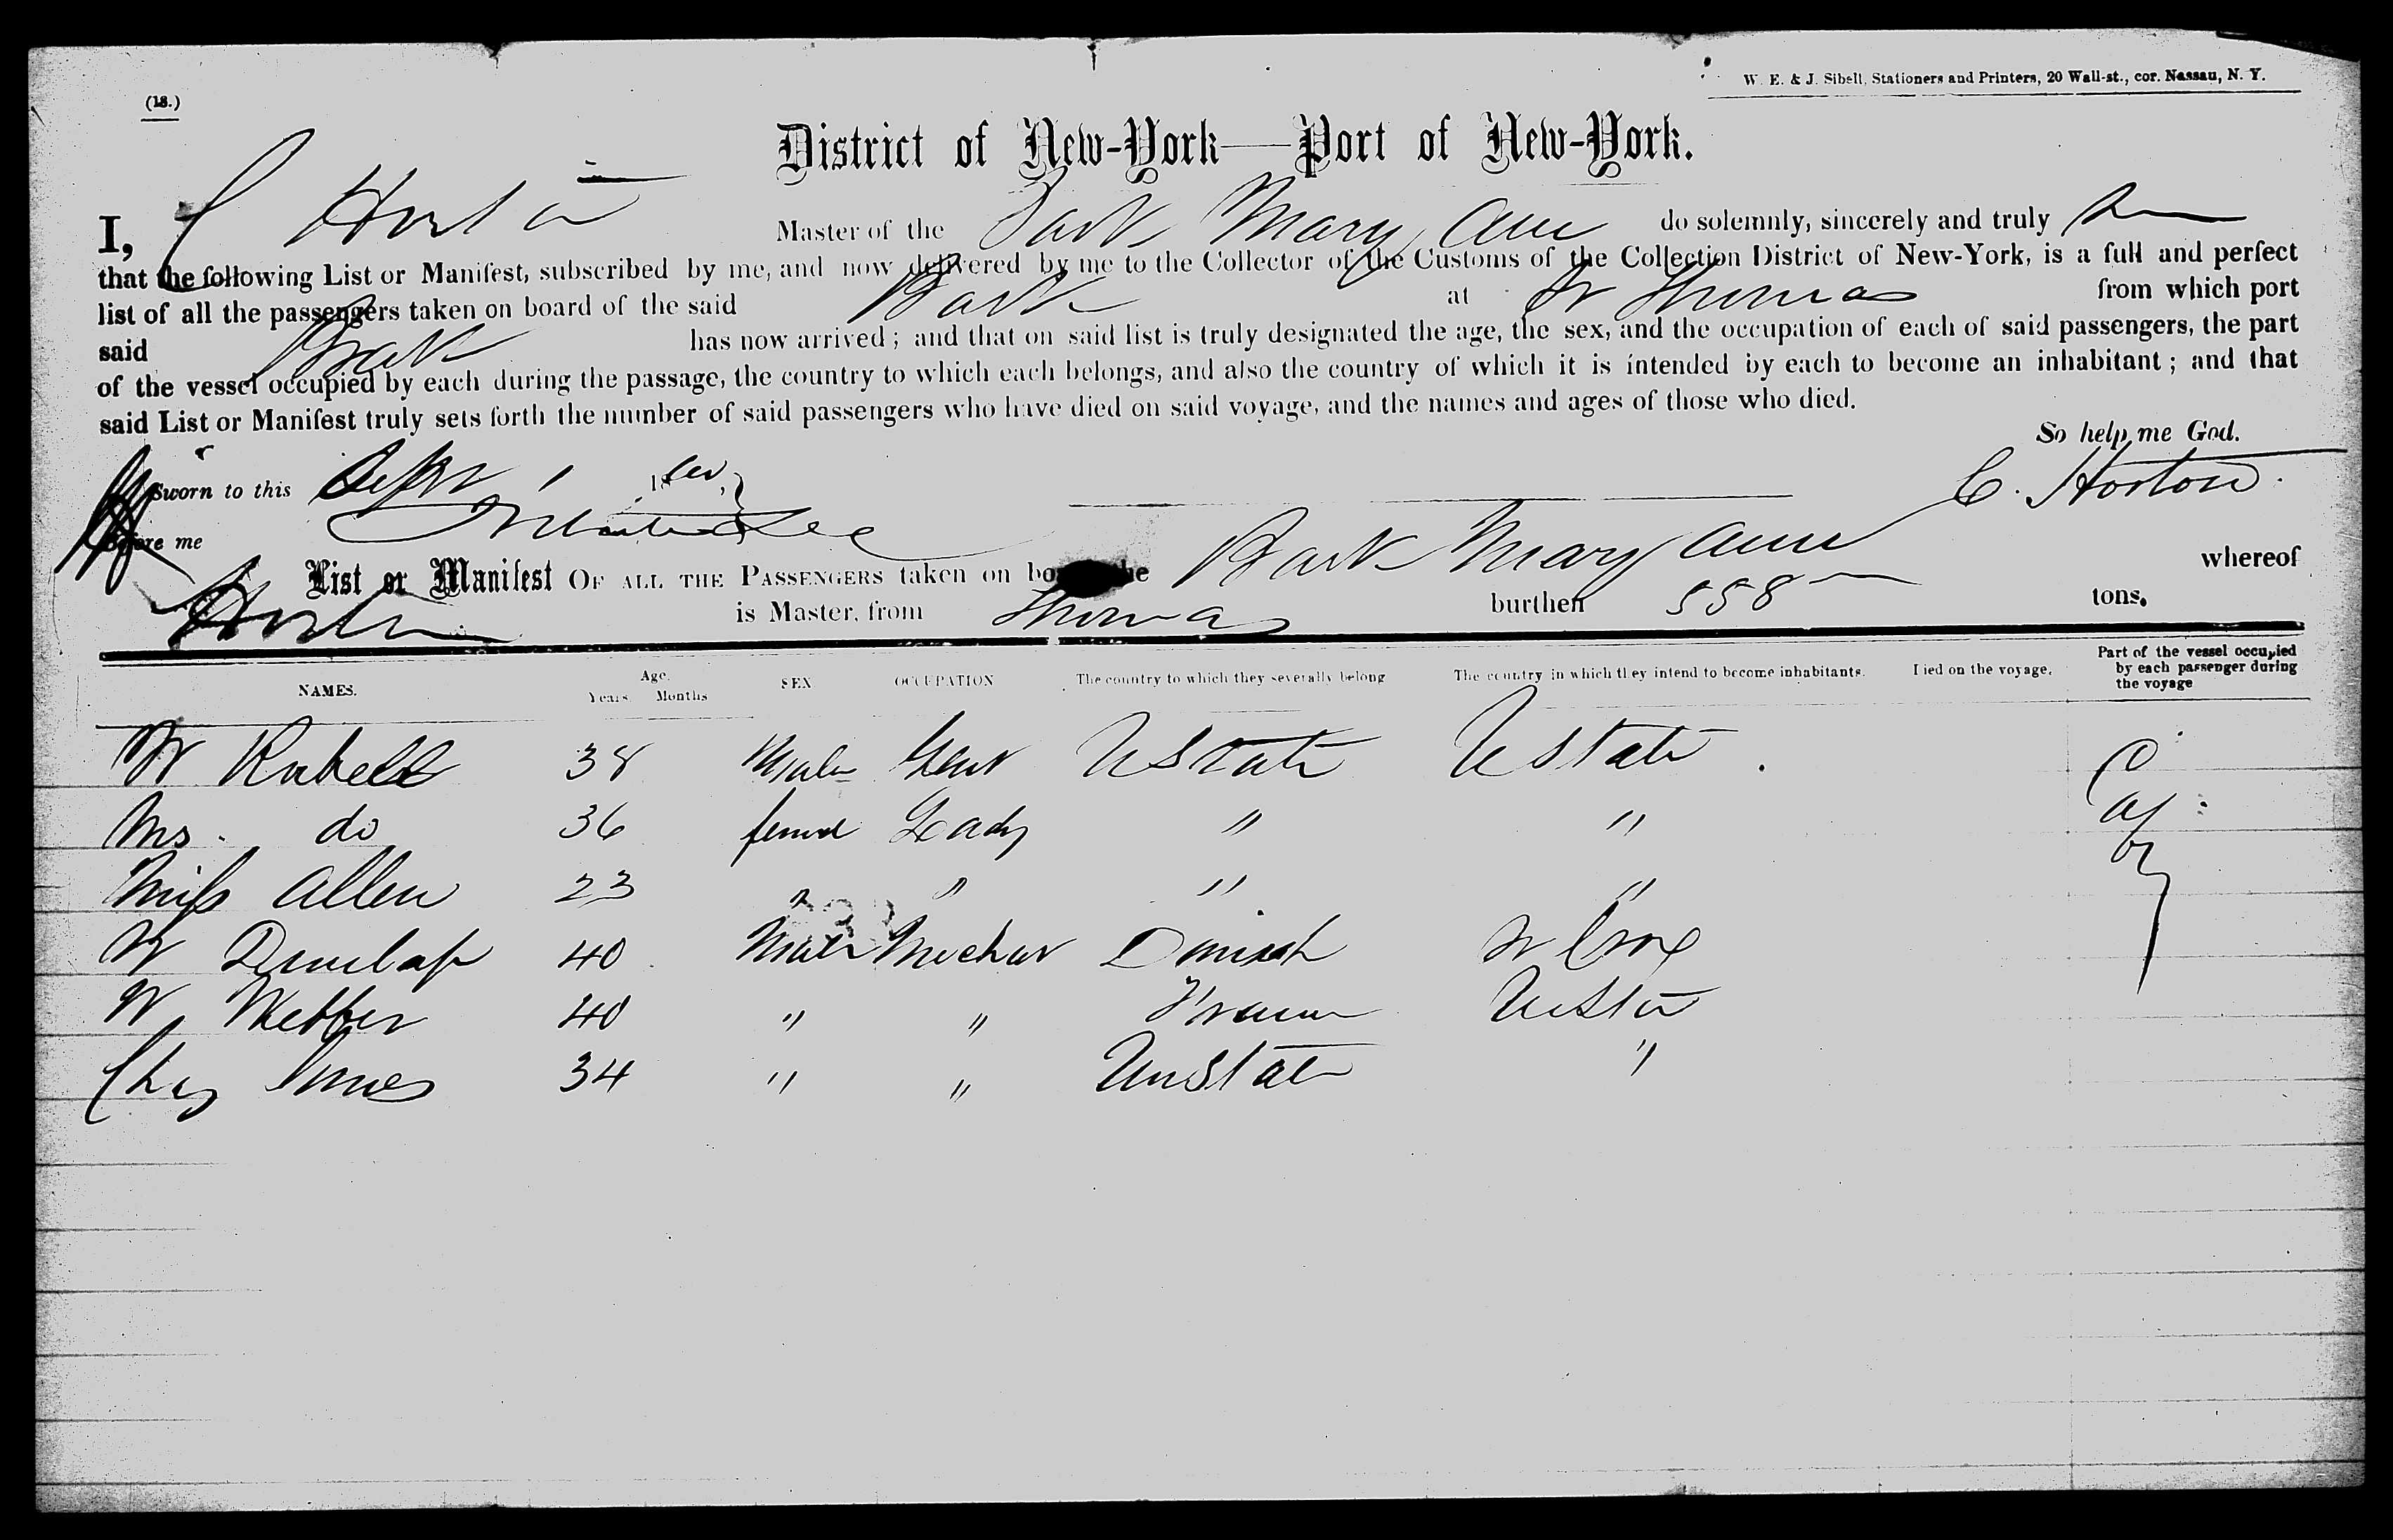 (18.)
W. E. & J. Sibell, Stationers and Printers, 20 Wall-st., cor. Nassau, N. Y.
District of New-York—Port of New-York.
I, C Horton Master of the Bark Mary Ann do solemnly, sincerely and truly
that the following List or Manifest, subscribed by me, and now delivered by me to the Collector of the Customs of the Collection District of New-York, is a full and perfect
list of all the passengers taken on board of the said Bark at St Thomas from which port
said Bark has now arrived; and that on said list is truly designated the age, the sex, and the occupation of each of said passengers, the part
of the vessel occupied by each during the passage, the country to which each belongs, and also the country of which it is intended by each to become an inhabitant; and that
said List or Manifest truly sets forth the number of said passengers who have died on said voyage, and the names and ages of those who died.
So help me God.
Sworn to this Sept 1 18
C. Horton.
Before me
List or Manifest OF ALL THE PASSENGERS taken on board the Bark Mary Ann whereof
Horton is Master, from Thomas burthen 558 tons.
NAMES. Age. Years. Months SEX OCCUPATION The country to which they severally belong The country in which they intend to become inhabitants. Died on the voyage. Part of the vessel occupied by each passenger during the voyage
W 38 Male Gent U State U State
Mrs. do 36 female Lady " "
Miss Allen 23 " " " "
W Dunlap 40 Male Mechar Danish St Croix
W Webber 40 " " France
Chas 34 " " Un State "